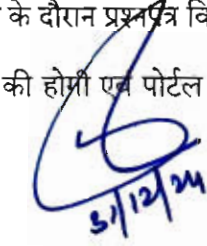 के दौरान प्रश्नपत्र वि
की होगी एवं पोर्टल
31/12/24